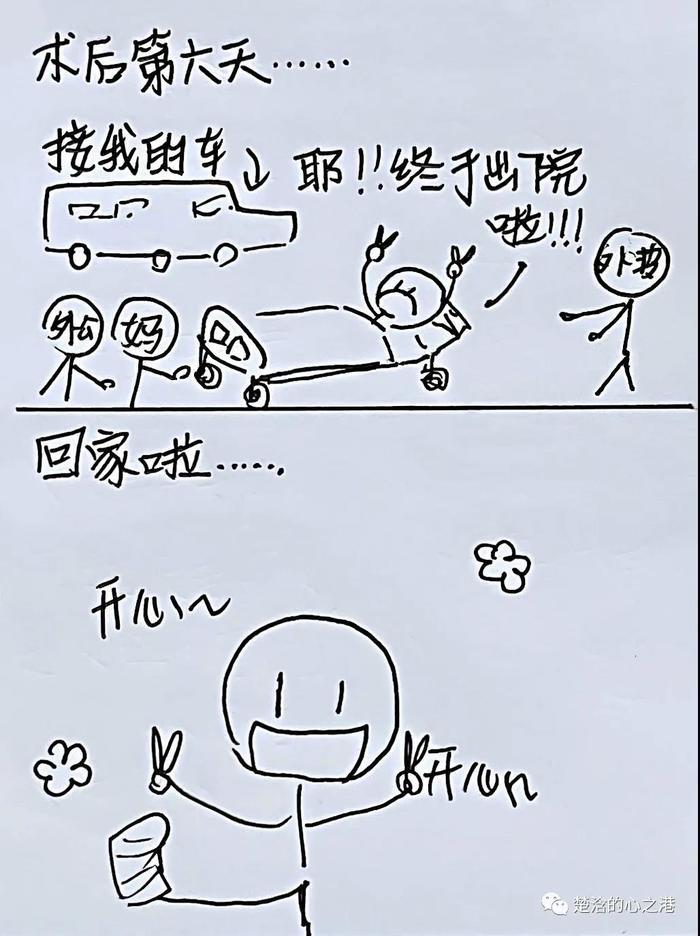 术后第六天……
接我的车
耶!!终于出院
啦!!!
外公
妈
外婆
回家啦……
开心~
开心~
楚浛的心之港